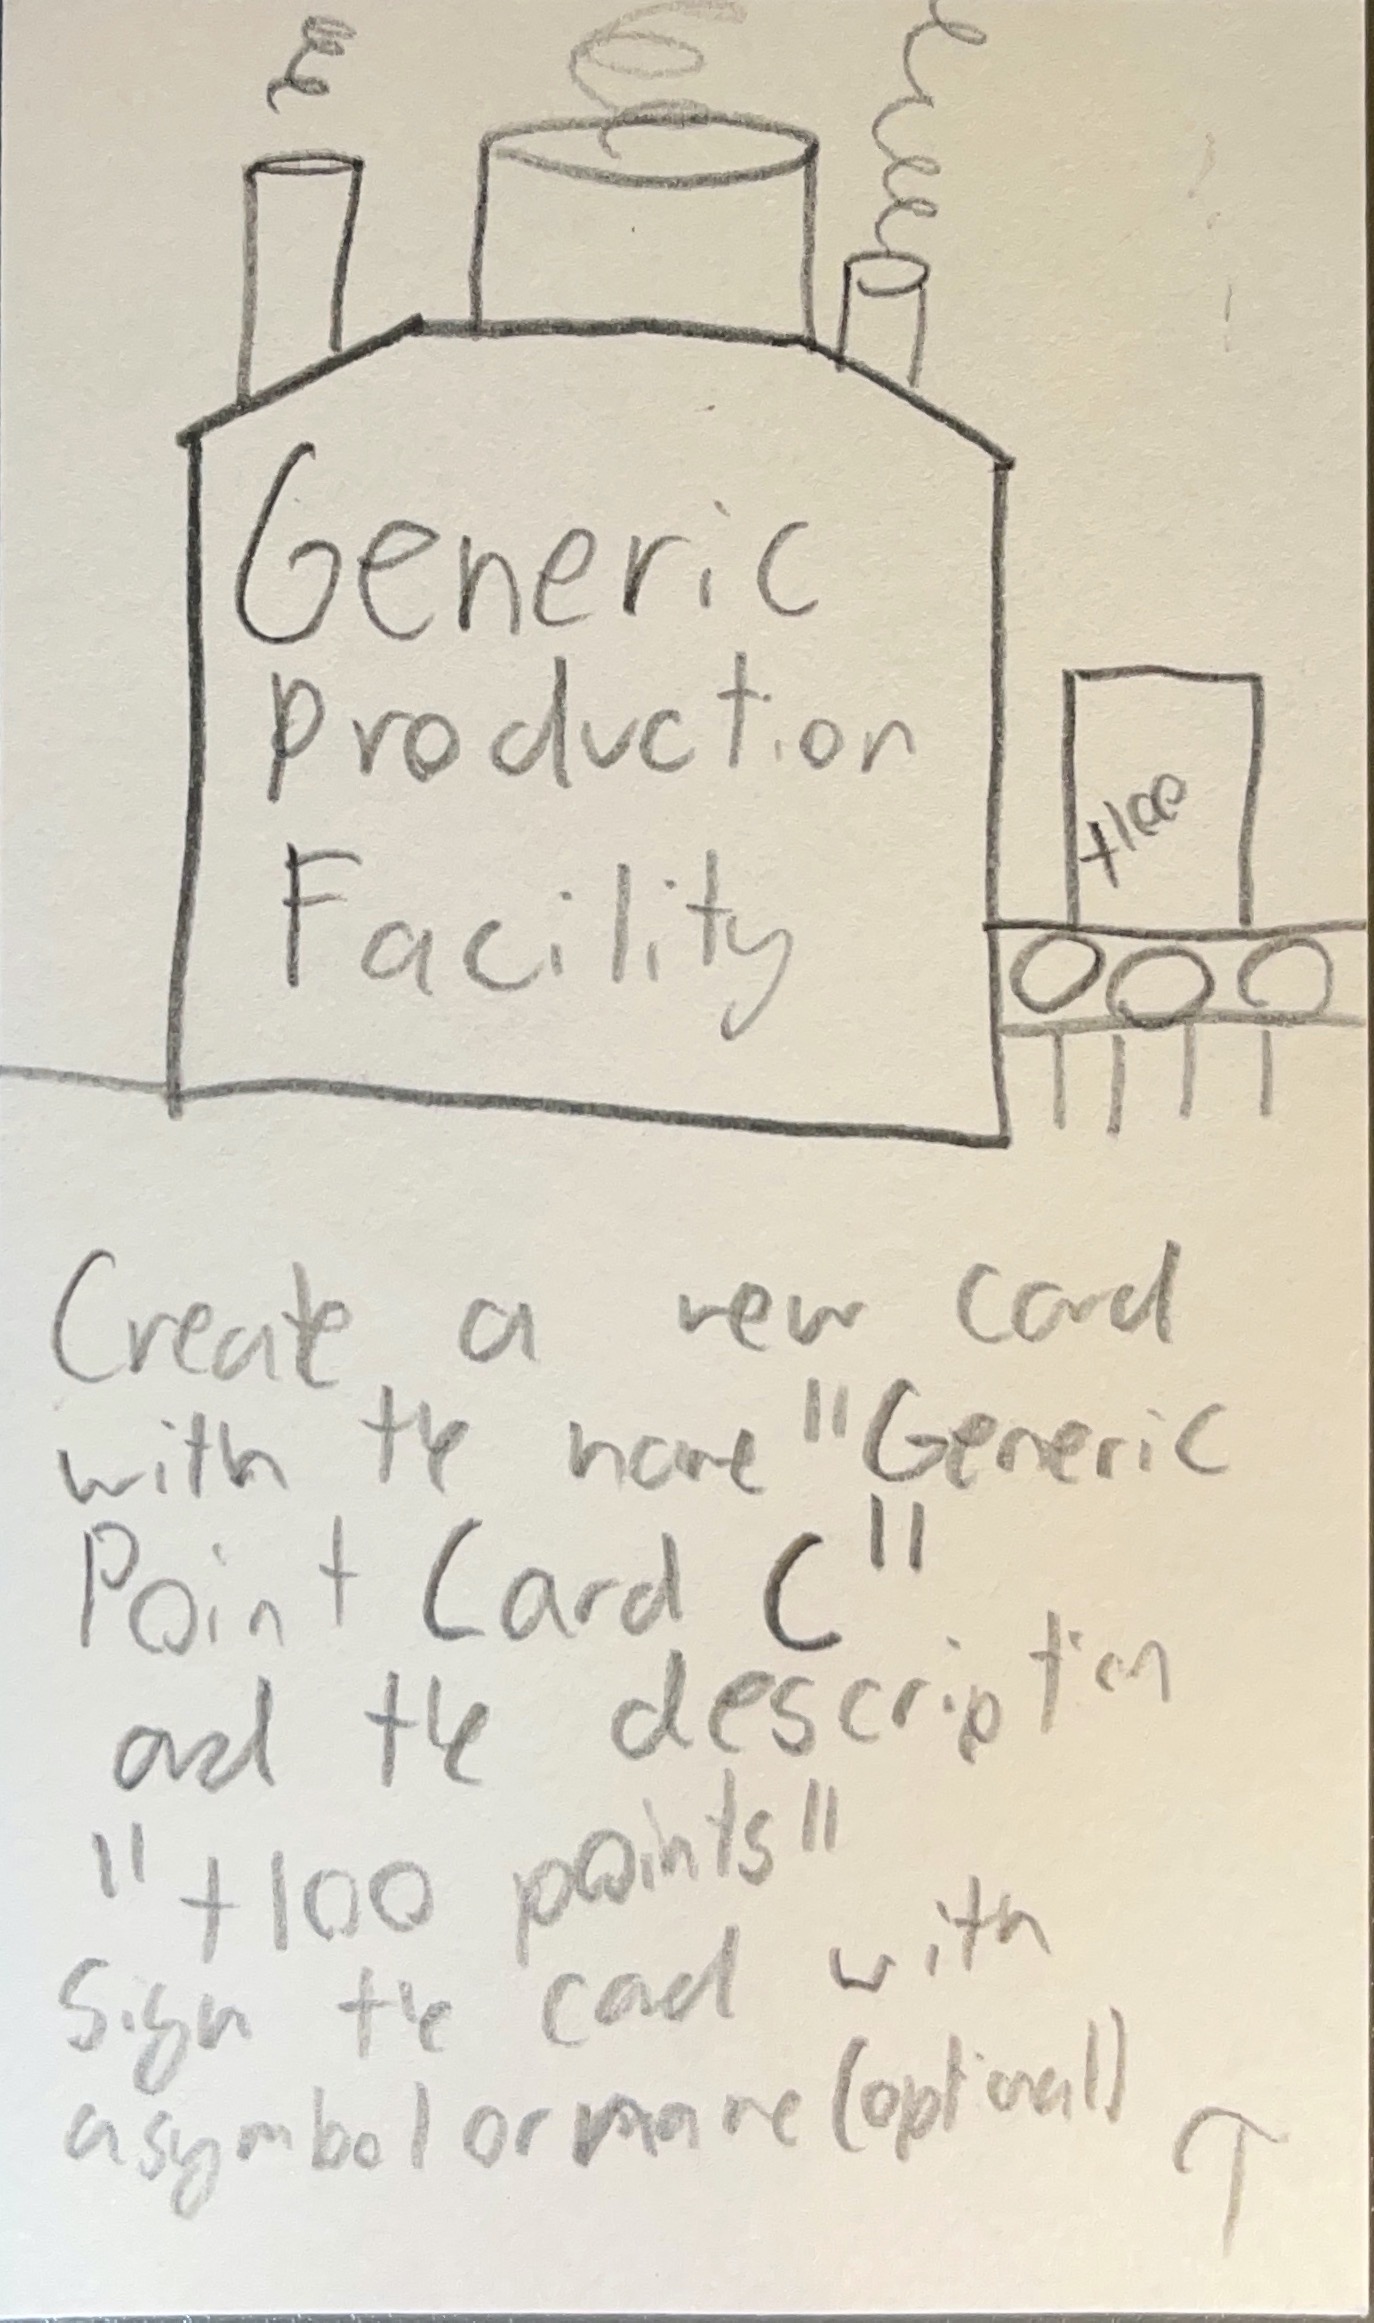 Generic
Production
Facility
+100
Create a new card
with the name "Generic
Point Card C"
and the description
"+100 points"
Sign the card with
a symbol or name (optional)
T